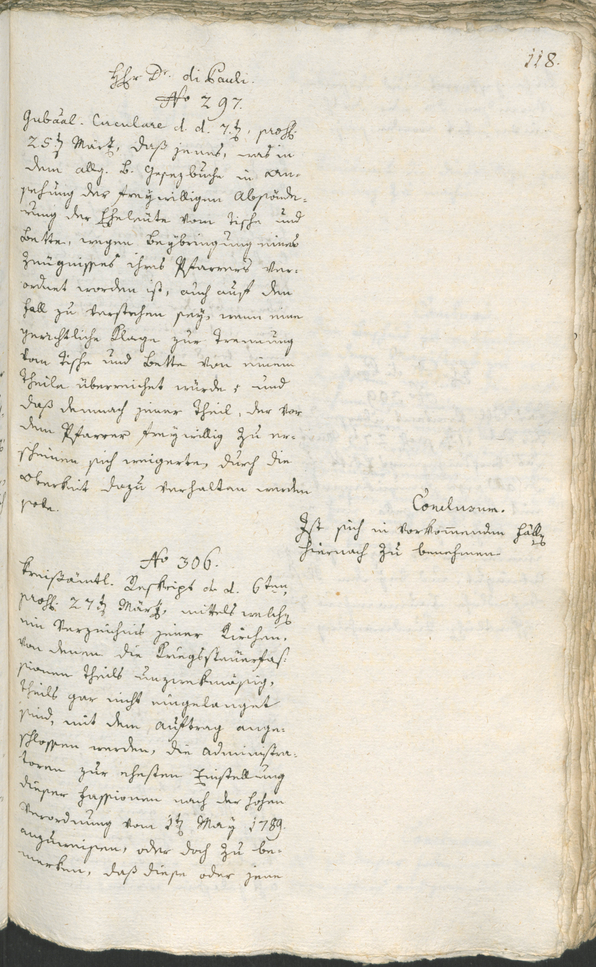 118.
Hr Dr. di Pauli.
No 297.
Gubāāl. Circulare d. d. 7t, prass.
25t Märt, daß jenes, was in
dem allg. b. Gesezbuche in An-
sehung der freywilligen Absönde-
rung der Eheleute vom Tische und
Bette, wegen Beybringung eines
Zeugnisses ihres Pfarrers ver-
ordnet worden ist, auch auf den
Fall zu verstehen sey, wenn eine
gerichtliche Klage zur Trennung
vom Tische und Bette von einem
Theile überreichet würde, und
daß demnach jener Theil, der vor
dem Pfarrer freywillig zu er-
scheinen sich weigerte, durch die
Oberkeit dazu verhalten werden
solle.
Conclusum.
Ist sich in vorkommenden Fällen
hiernach zu benehmen
No 306.
Kreisämtl. Reskript d. d. 6ten,
prass. 27t März, mittels welchen
ein Verzeichnis jener Kirchen,
von denen die Kriegssteuerfas-
sionen theils unzwekmäsig,
theils gar nicht eingelanget
sind, mit dem Auftrag ange-
schlossen werden, die Administra-
toren zur ehesten Einstellung
dieser Fassionen nach der hohen
Verordnung vom 1t May 1789.
anzuweisen, oder doch zu be-
merken, daß diese oder jene